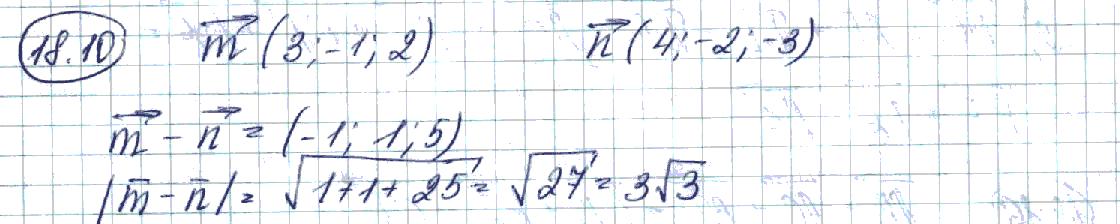 18.10 m⃗ (3; -1; 2) n⃗ (4; -2; -3)
m⃗ - n⃗ = (-1; 1; 5)
|m̅ - n̅| = √(1+1+25) = √27 = 3√3